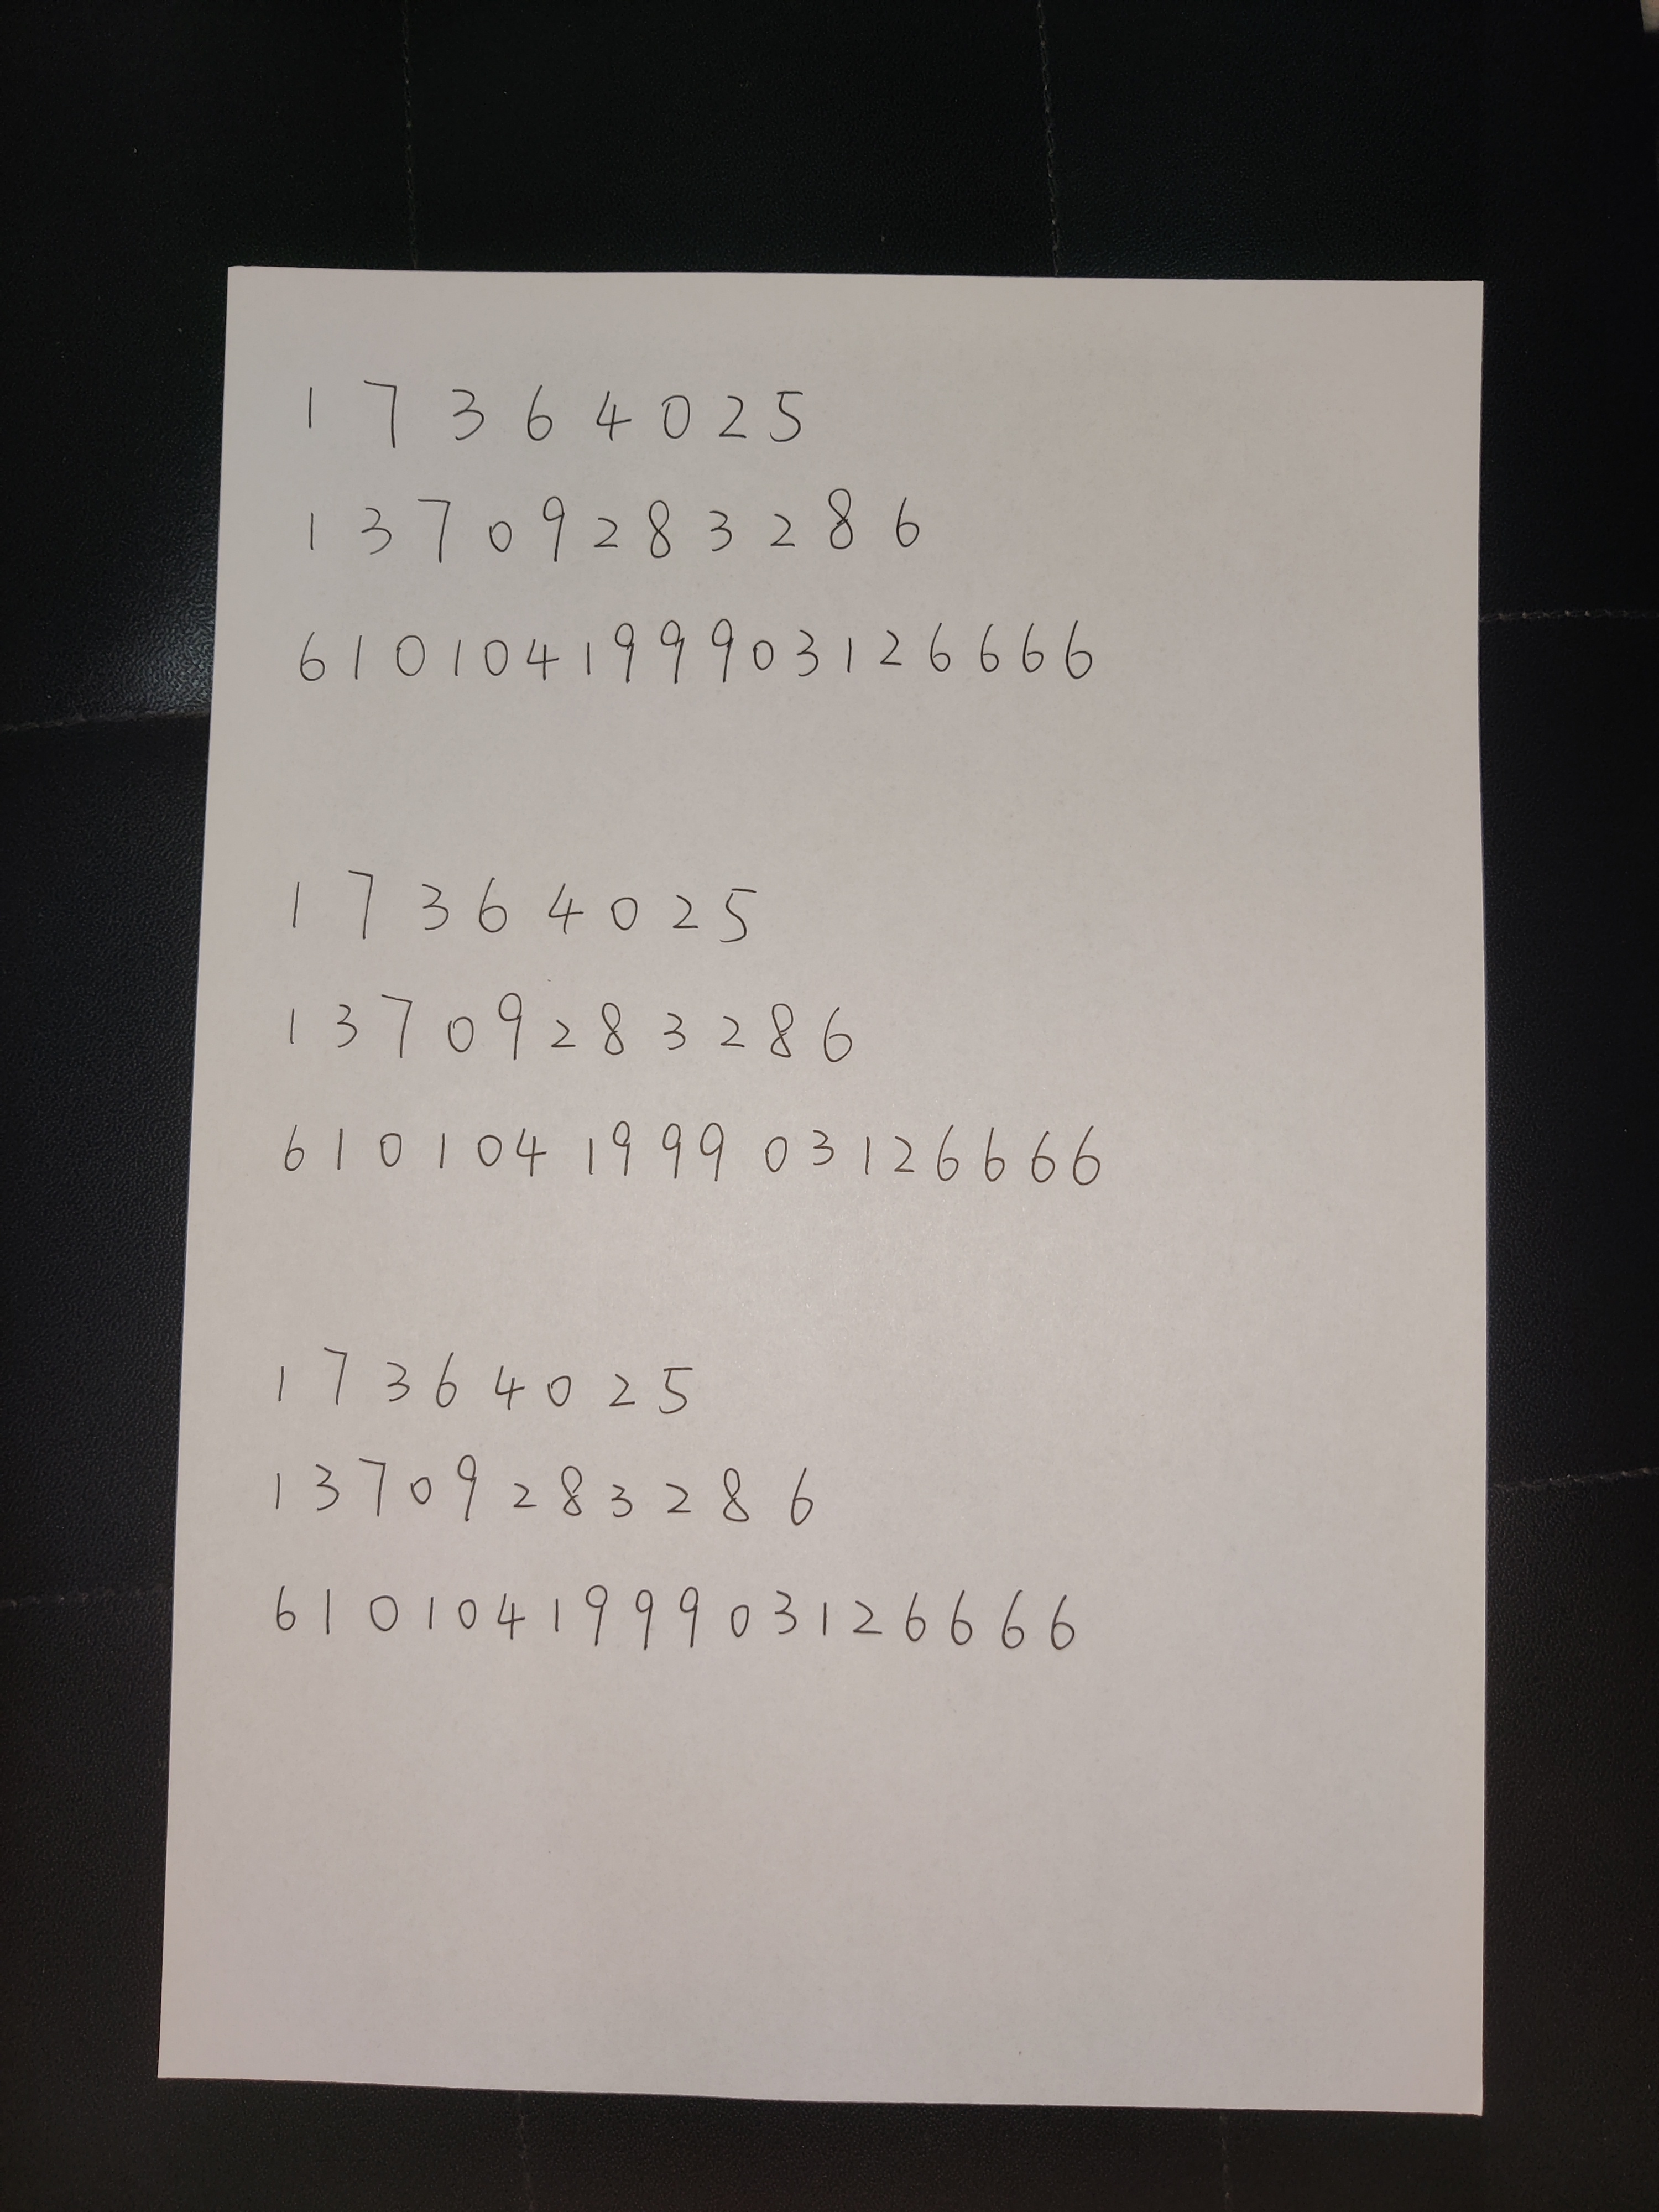 17364025
13709283286
610104199903126666
17364025
13709283286
610104199903126666
17364025
13709283286
610104199903126666